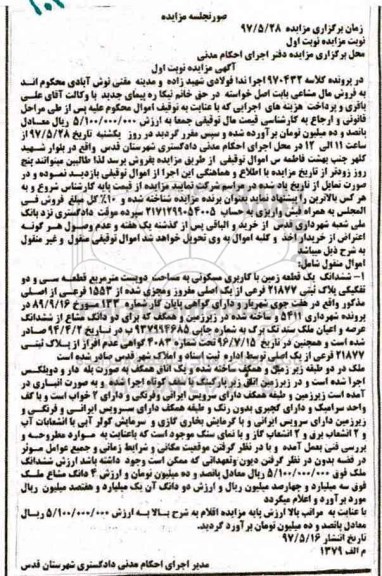 صورتجلسه مزایده
زمان برگزاری مزایده ۹۷/۵/۲۸
نوبت مزایده نوبت اول
محل برگزاری مزایده دفتر اجرای احکام مدنی
آگهی مزایده نوبت اول
در پرونده کلاسه ۹۷۰۴۳۲ اجرا ندا فولادی شهید زاده و مدینه مفتی نوش آبادی محکوم اند
به فروش مال مشاعی بابت اصل خواسته در حق خانم نیکا ره پیمای جدید با وکالت آقای علی
باقری و پرداخت هزینه های اجرایی که با عنایت به توقیف اموال محکوم علیه پس از طی مراحل
قانونی و ارجاع به کارشناسی قیمت مال توقیفی جمعا به ارزش ۵/۱۰۰/۰۰۰/۰۰۰ ریال معادل
پانصد و ده میلیون تومان برآورده شده و سپس مقرر گردید در روز یکشنبه تاریخ ۹۷/۵/۲۸ از
ساعت ۱۱ الی ۱۲ در محل اجرای احکام مدنی دادگستری شهرستان قدس واقع در بلوار شهید
کلهر جنب بهشت فاطمه س اموال توقیفی از طریق مزایده بفروش برسد لذا طالبین میتوانند پنج
روز زودتر از تاریخ مزایده با اطلاع و هماهنگی این اجرا از اموال توقیفی بازدید نموده و در
صورت تمایل از تاریخ یاد شده در مراسم شرکت نمایند مزایده از قیمت پایه کارشناس شروع و به
هر کس بالاترین را پیشنهاد نماید بعنوان برنده مزایده شناخته شده و ۱۰٪ کل مبلغ فروش فی
المجلس به همراه فیش واریزی به حساب ۲۱۷۱۲۹۹۰۵۴۰۰۵ سپرده موقت دادگستری نزد بانک
ملی شعبه شهرداری قدس از خرید و الباقی پس از گذشته یک هفته و عدم وصول هر گونه
اعتراض از خریدار اخذ و کلیه اموال به وی تحویل خواهد شد اموال توقیفی منقول و غیر منقول
به شرح ذیل میباشد
اموال منقول شامل:
۱- ششدانگ یک قطعه زمین با کاربری مسکونی به مساحت دویست مترمربع قطعه سی و دو
تفکیکی پلاک ثبتی ۲۱۸۷۷ فرعی از یک اصلی مفروز ومجزی شده از ۱۵۵۳ فرعی از اصلی
مذکور واقع در هفت جوی شهریار و دارای گواهی پایان کار شماره ۱۳۳ مورخ ۸۹/۹/۱۶
پرونده شهرداری ۵۴۱۱ و ساخته شده در زیرزمین و همکف که برای دو دانگ مشاع از ششدانگ
عرصه و اعیان ملک سند تک برگ به شماره چاپی ۹۳۷۹۹۴۶۸۵ ب در تاریخ ۹۴/۴/۲ صادر
شده است و همچنین در تاریخ ۹۶/۷/۱۵ تحت شماره ۴۰۸۳ گواهی عدم افراز از پلاک ثبتی
۲۱۸۷۷ فرعی از یک اصلی توسط اداره ثبت اسناد و املاک شهر قدس صادر شده است
ملک در دو طبقه زیر زمین و همکف ساخته شده و یک اتاق همکف به صورت پله دار و دوبلکس
اجرا شده است و در زیرزمین اتاق زیر پارکینگ با سقف کوتاه اجرا شده و به صورت انباری در
آمده است زیرزمین و طبقه همکف دارای سرویس ایرانی وفرنگی و دارای ۲ خواب است و با کف
واحد سرامیک و دارای گچبری بدون رنگ و طبقه همکف دارای سرویس ایرانی و فرنگی و
زیرزمین دارای سرویس ایرانی و با گرمایش بخاری گازی و سرمایش کولر آبی با انشعابات آب
و ۲ انشعاب برق و ۲ انشعاب گاز و با نمای سنگ موجود است که باعنایت به موارد مطروحه و
بررسی فنی بعمل آمده و با در نظر گرفتن موقعیت مکانی و شرایط زمانی و جمیع عوامل موثر
در قضیه بدون در نظر گرفتن دیون وتعهداتی که ممکن است وجود داشته باشد ارزش ششدانگ
ملک فوق ۵/۱۰۰/۰۰۰/۰۰۰ ریال معادل پانصد و ده میلیون تومان و ارزش ۴ دانگ مشاع ملک
فوق سه میلیارد و چهارصد میلیون ریال و ارزش دو دانگ آن یک میلیارد و هفتصد میلیون ریال
مورد برآورد و اعلام میگردد
با عنایت به مراتب بالا ارزش پایه مزایده اقلام به شرح بالا به ارزش ۵/۱۰۰/۰۰۰/۰۰۰ ریال
معادل پانصد و ده میلیون تومان برآورد گردید.
تاریخ انتشار ۹۷/۵/۱۶
م الف ۱۳۷۹
مدیر اجرای احکام مدنی دادگستری شهرستان قدس